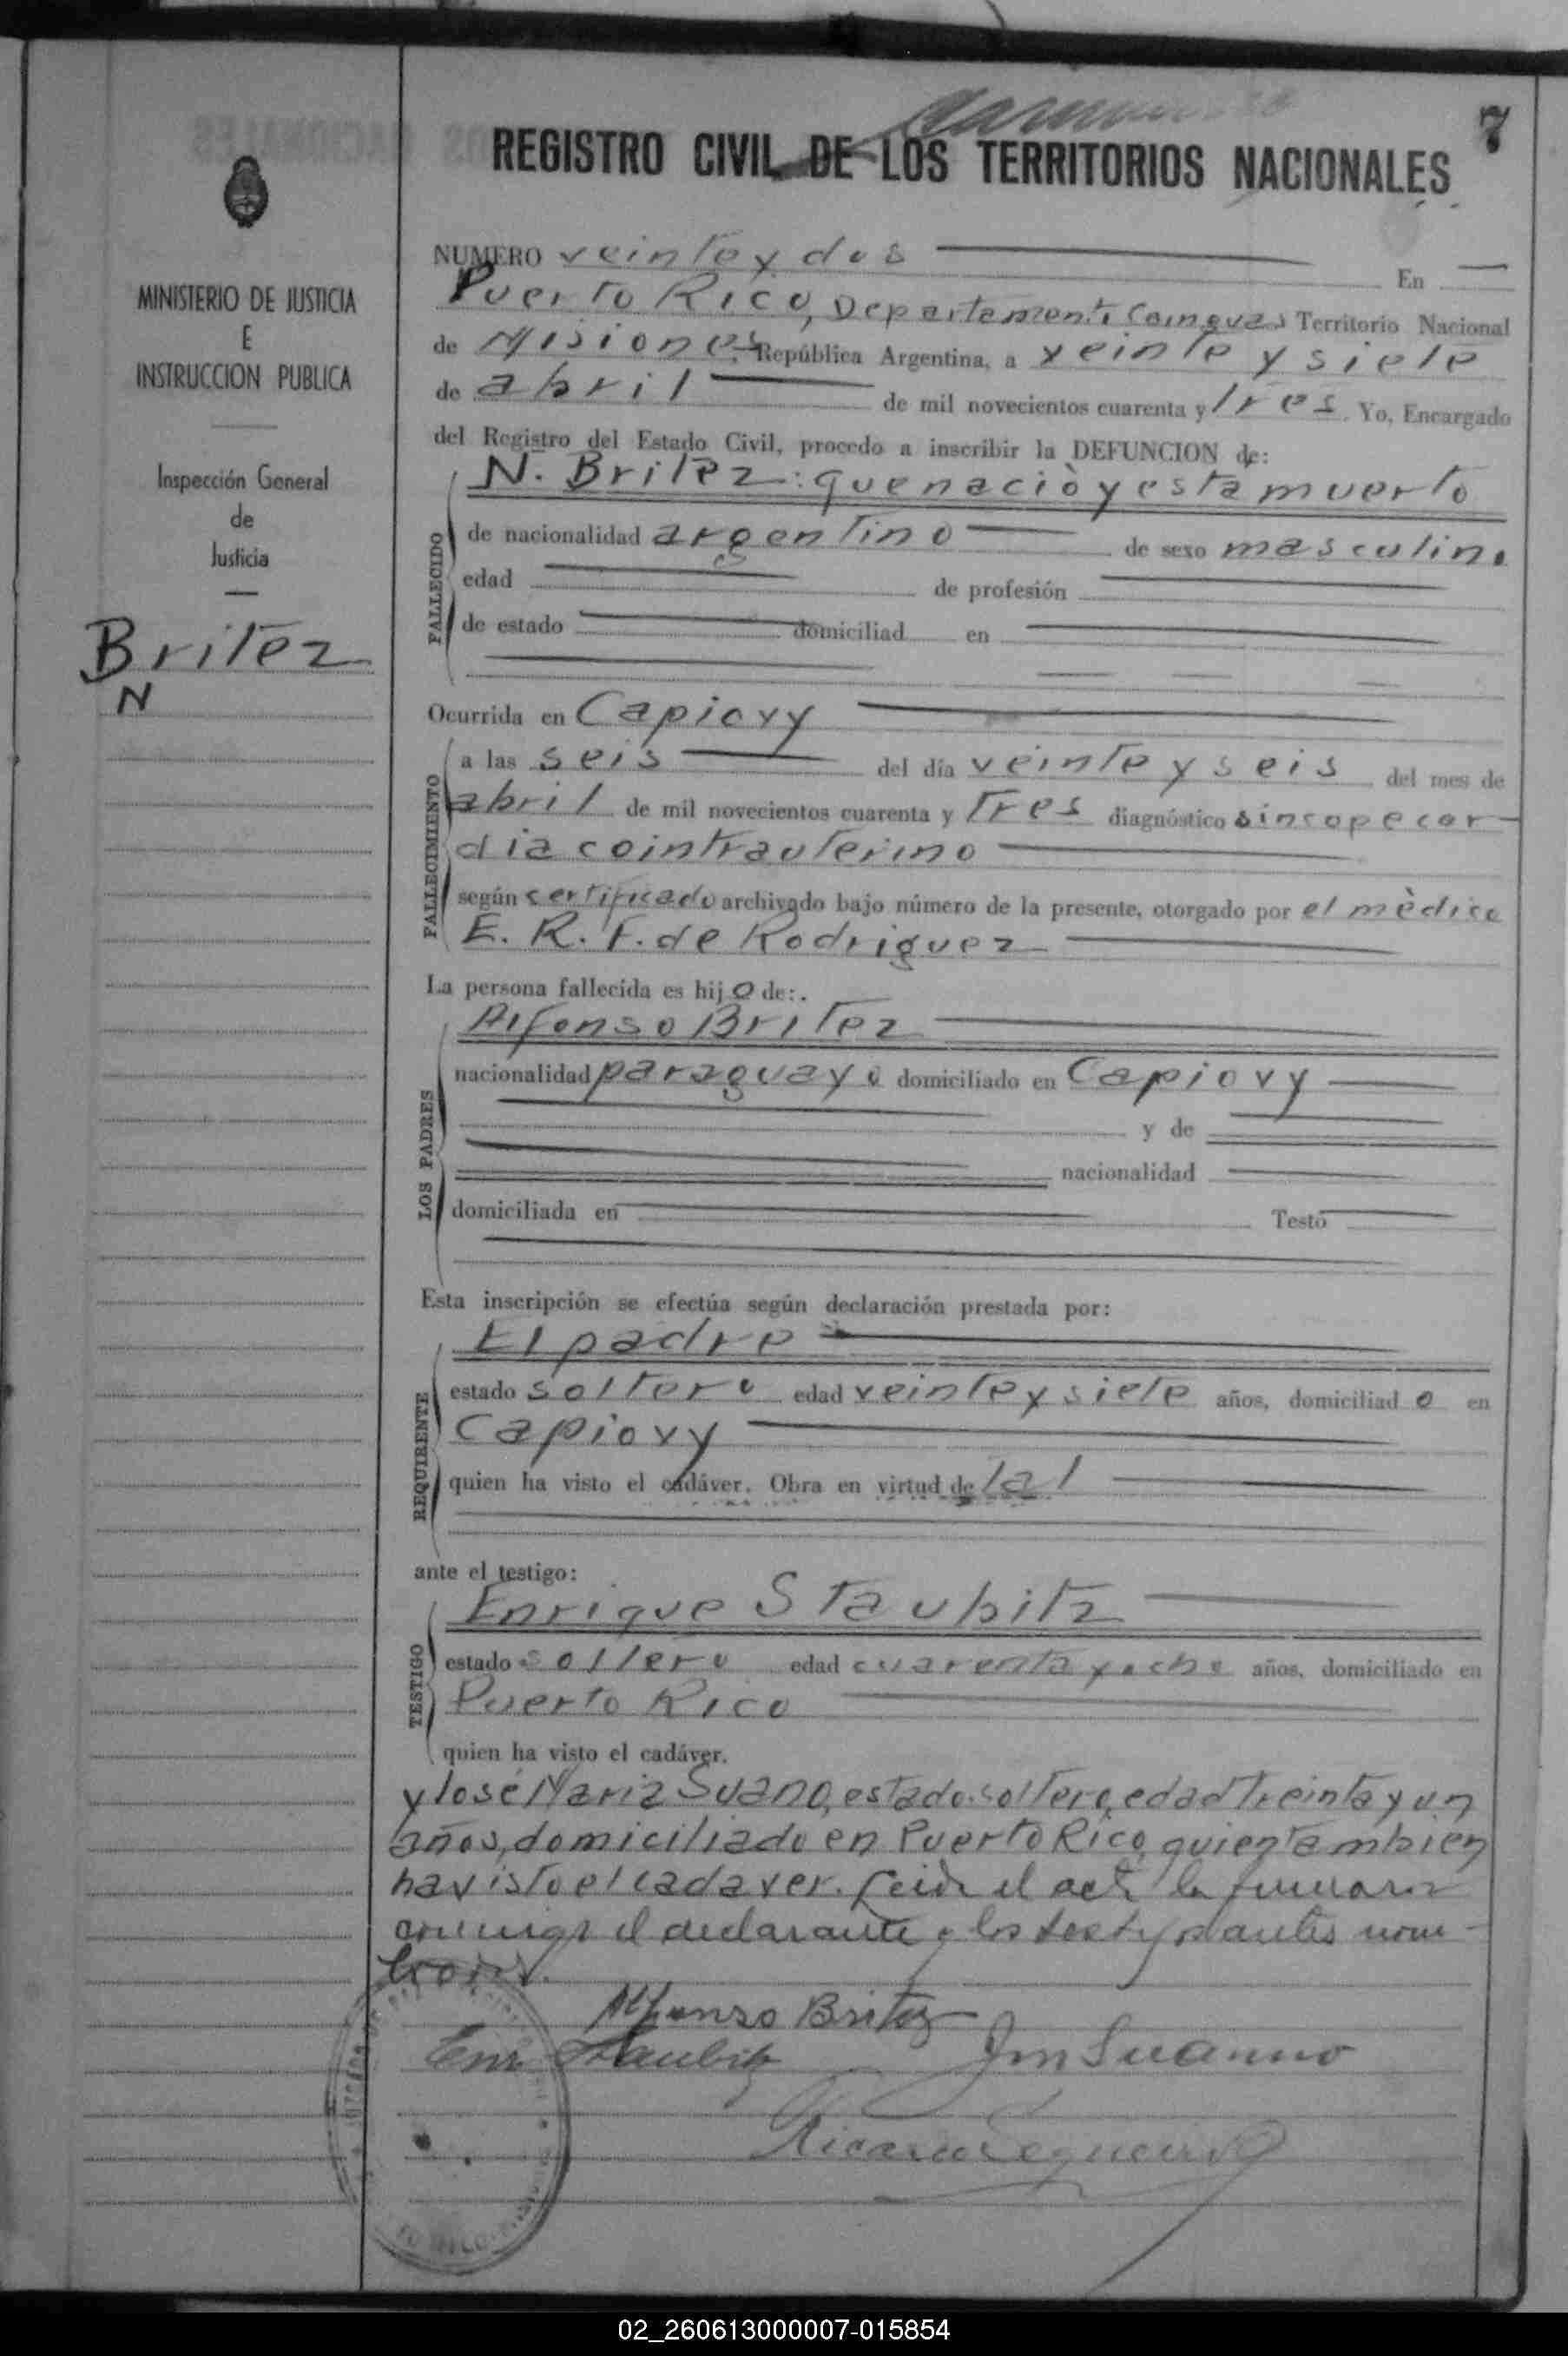 7
REGISTRO CIVIL DE LOS TERRITORIOS NACIONALES
MINISTERIO DE JUSTICIA
E
INSTRUCCION PUBLICA
Inspección General
de
Justicia
Britez
N
NUMERO veinte y dos En
Puerto Rico, Departamento Cainguas Territorio Nacional
de Misiones, República Argentina, a veinte y siete
de abril de mil novecientos cuarenta y tres. Yo, Encargado
del Registro del Estado Civil, procedo a inscribir la DEFUNCION de:
N. Britez: que naciò y esta muerto
FALLECIDO
de nacionalidad argentino de sexo masculino
edad de profesión
de estado domiciliad en
Ocurrida en Capiovy
FALLECIMIENTO
a las seis del día veinte y seis del mes de
abril de mil novecientos cuarenta y tres diagnóstico sincope car-
dia co intrauterino
según certificado archivado bajo número de la presente, otorgado por el mèdico
E. R. F. de Rodriguez
La persona fallecida es hijo de:.
LOS PADRES
Alfonso Britez
nacionalidad paraguayo domiciliado en Capiovy
y de
nacionalidad
domiciliada en Testó
Esta inscripción se efectúa según declaración prestada por:
REQUIRENTE
El padre
estado soltero edad veinte y siete años, domiciliado en
Capiovy
quien ha visto el cadáver. Obra en virtud de tal
ante el testigo:
TESTIGO
Enrique Staubitz
estado soltero edad cuarenta y ocho años, domiciliado en
Puerto Rico
quien ha visto el cadáver.
y José Maria Suano, estado soltero, edad treinta y un
años, domiciliado en Puerto Rico, quien tambien
ha visto el cadaver. Leida el acta la firmaron
conmigo el declarante y los testigos antes nom-
brados.
Alfonso Britez
Enr Staubitz Jm Suanno
Ricardo
02_260613000007-015854